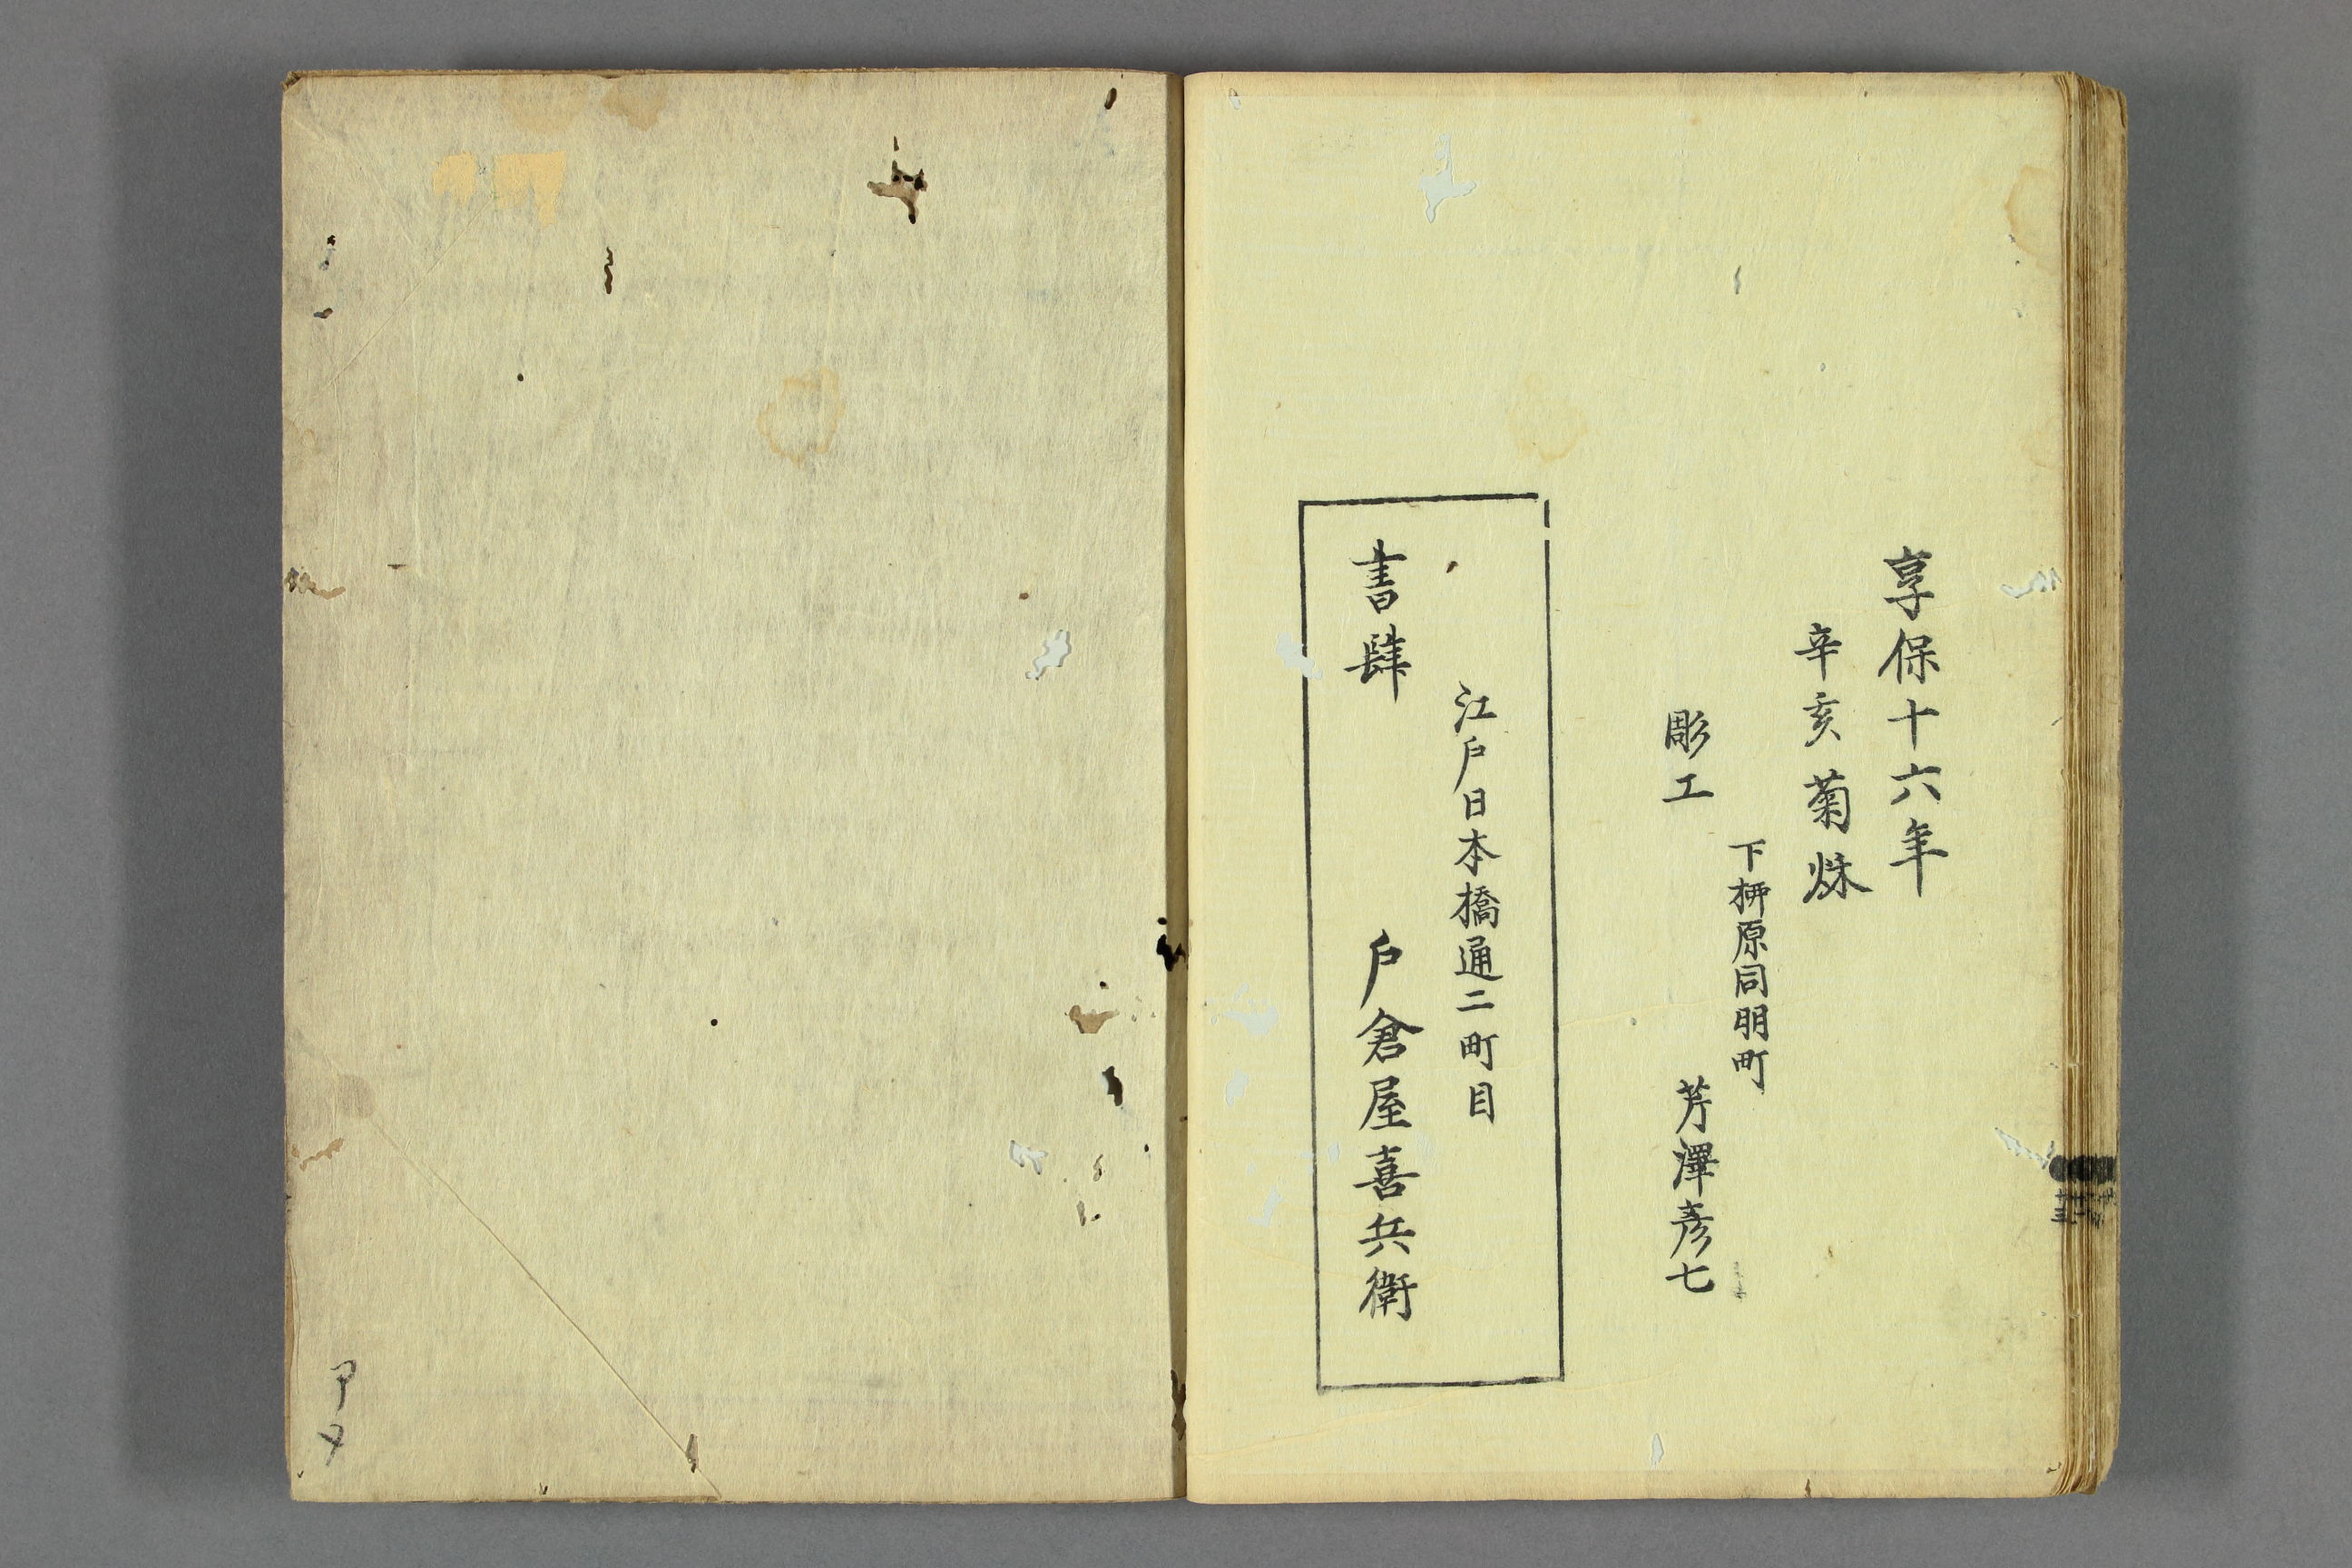 享保十六年
辛亥菊烌
下栁原同朋町
彫工
芹澤彦七
江戸日本橋通二町目
書肆
戸倉屋喜兵衛